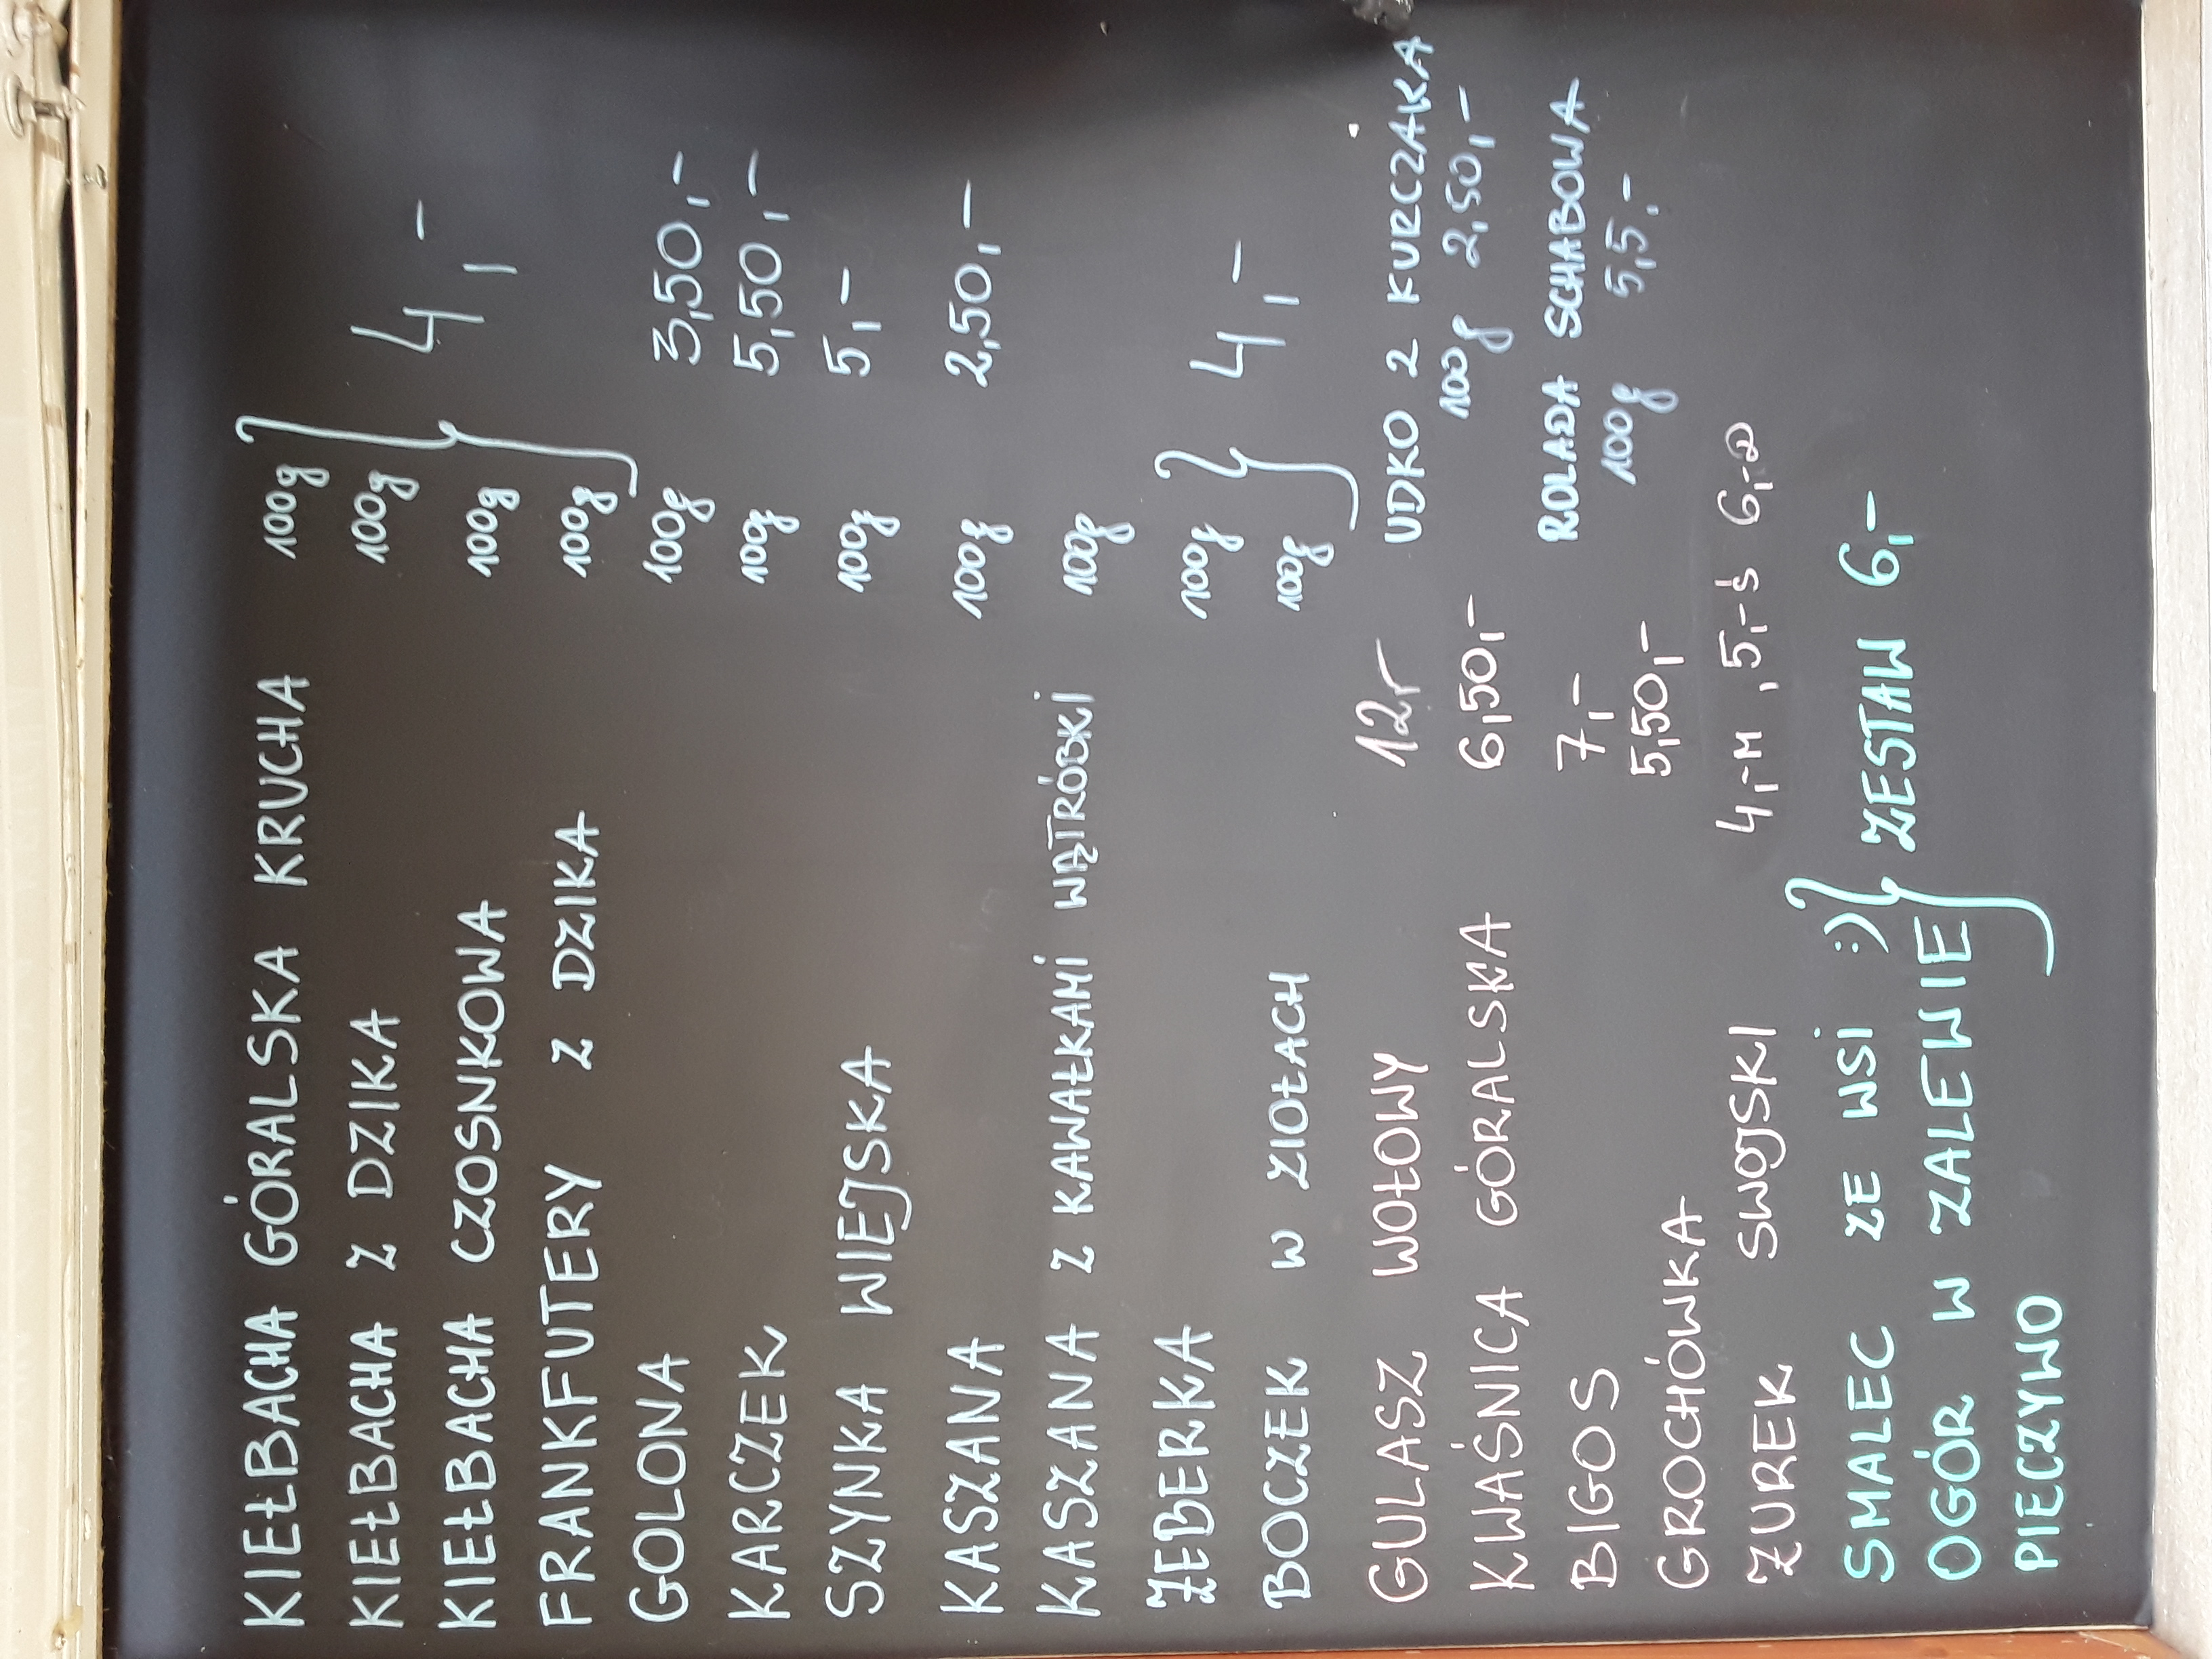 KIEŁBACHA GÓRALSKA KRUCHA 100g
KIEŁBACHA Z DZIKA 100g } 4,-
KIEŁBACHA CZOSNKOWA 100g
FRANKFUTERY Z DZIKA 100g
GOLONA 100g 3,50,-
KARCZEK 100g 5,50,-
SZYNKA WIEJSKA 100g 5,-
KASZANA 100g 2,50,-
KASZANA Z KAWAŁKAMI WĄTRÓBKI 100g
ŻEBERKA 100g } 4,-
BOCZEK W ZIOŁACH 100g
GULASZ WOŁOWY 12,-
UDKO Z KURCZAKA
100g 2,50,-
KWAŚNICA GÓRALSKA 6,50,-
BIGOS 7,-
ROLADA SCHABOWA
100g 5,5.-
GROCHÓWKA 5,50,-
ŻUREK SWOJSKI 4,-M , 5,-Ś 6,-D
SMALEC ZE WSI :)
OGÓR W ZALEWIE } ZESTAW 6,-
PIECZYWO